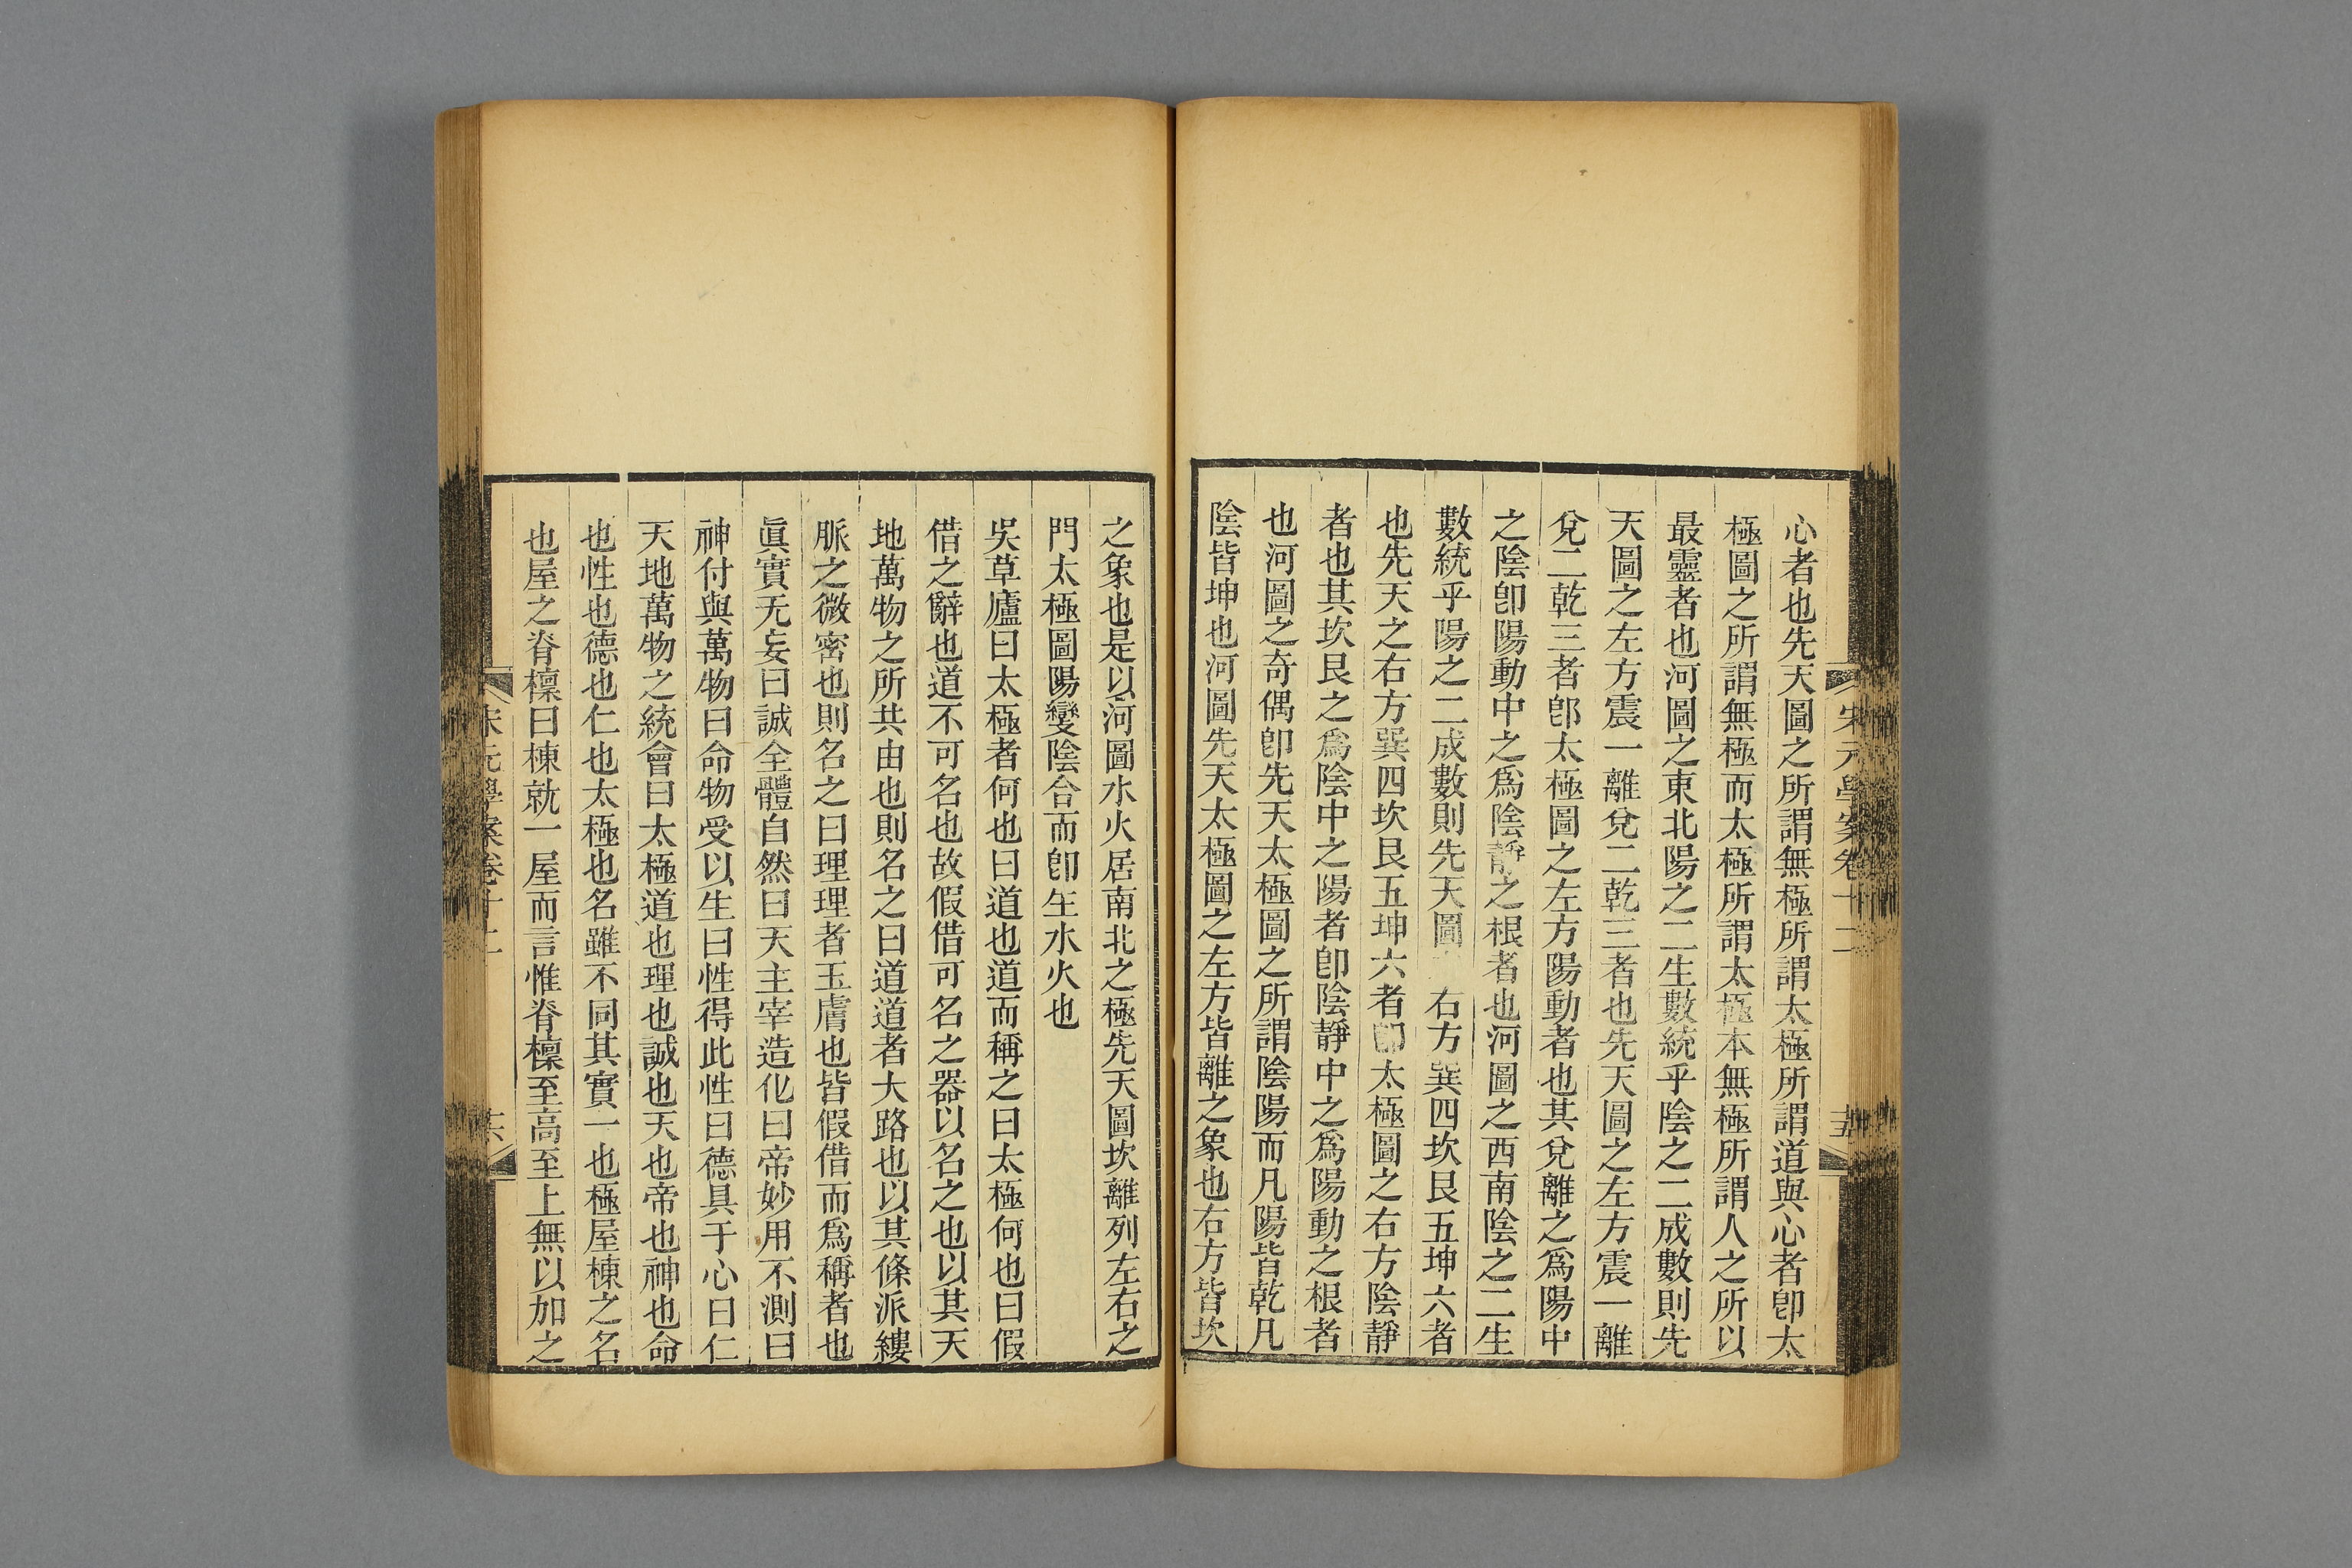 宋元學案卷十二
十五
心者也先天圖之所謂無極所謂太極所謂道與心者卽太
極圖之所謂無極而太極所謂太極本無極所謂人之所以
最靈者也河圖之東北陽之二生數統乎陰之二成數則先
天圖之左方震一離兌二乾三者也先天圖之左方震一離
兌二乾三者卽太極圖之左方陽動者也其兌離之爲陽中
之陰卽陽動中之爲陰靜之根者也河圖之西南陰之二生
數統乎陽之二成數則先天圖右方巽四坎艮五坤六者
也先天之右方巽四坎艮五坤六者卽太極圖之右方陰靜
者也其坎艮之爲陰中之陽者卽陰靜中之爲陽動之根者
也河圖之奇偶卽先天太極圖之所謂陰陽而凡陽皆乾凡
陰皆坤也河圖先天太極圖之左方皆離之象也右方皆坎
之象也是以河圖水火居南北之極先天圖坎離列左右之
門太極圖陽變陰合而卽生水火也
吳草廬曰太極者何也曰道也道而稱之曰太極何也曰假
借之辭也道不可名也故假借可名之器以名之也以其天
地萬物之所共由也則名之曰道道者大路也以其條派縷
脈之微密也則名之曰理理者玉膚也皆假借而爲稱者也
眞實无妄曰誠全體自然曰天主宰造化曰帝妙用不測曰
神付與萬物曰命物受以生曰性得此性曰德具于心曰仁
天地萬物之統會曰太極道也理也誠也天也帝也神也命
也性也德也仁也太極也名雖不同其實一也極屋棟之名
也屋之脊檁曰棟就一屋而言惟脊檁至高至上無以加之
宋元學案卷十二
十六